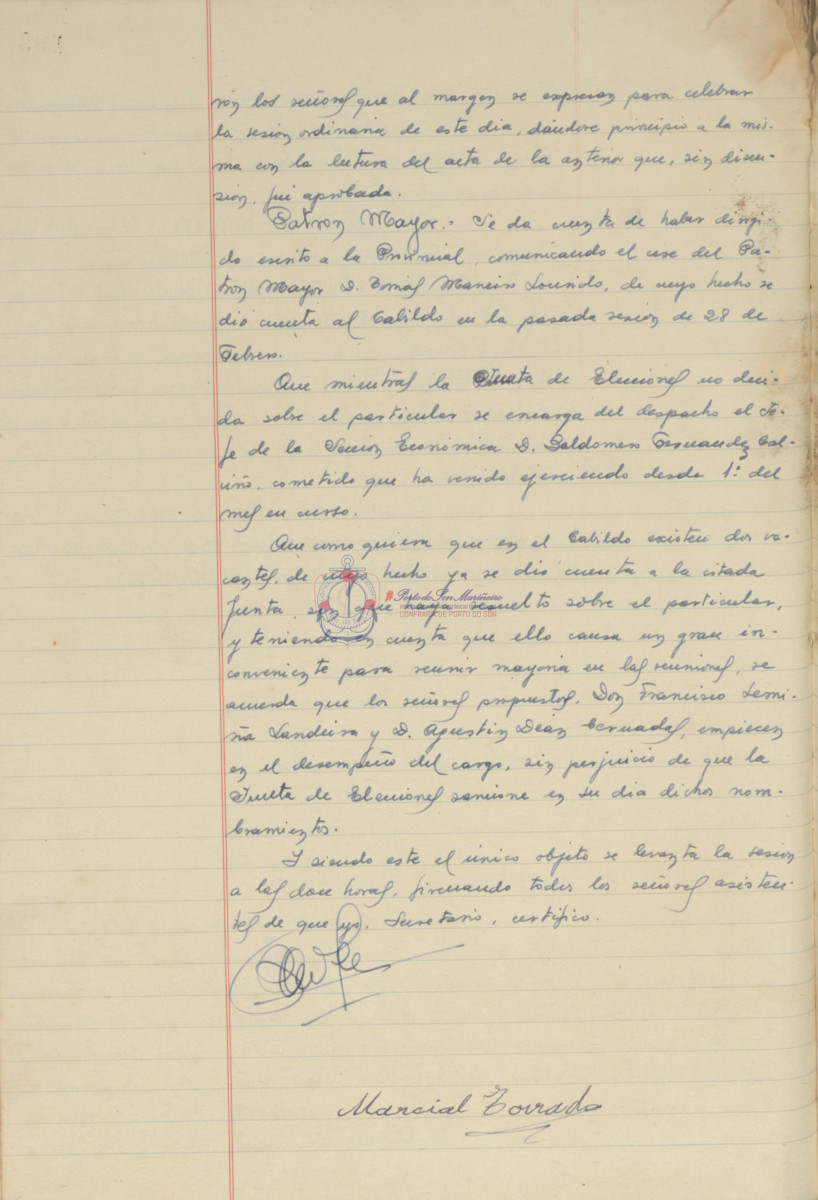 ron los señores que al margen se expresan para celebrar
la sesión ordinaria de este dia, dándose principio a la mis-
ma con la lectura del acta de la anterior que, sin discu-
sión, fué aprobada.
Patron Mayor.- Se da cuenta de haber dirigi-
do escrito a la Provincial, comunicando el cese del Pa-
tron Mayor D. Tomás Maneiro Lourido, de cuyo hecho se
dió cuenta al Cabildo en la pasada sesión de 28 de
Febrero.
Que mientras la Junta de Elecciones no deci-
da sobre el particular se encarga del despacho el Je-
fe de la Sección Económica D. Baldomero Fernandez Cal-
viño, cometido que ha venido ejerciendo desde 1º del
mes en curso.
Que como quiera que en el Cabildo existen dos va-
cantes, de cuyo hecho ya se dió cuenta a la citada
Junta, sin que haya resuelto sobre el particular,
y teniendo en cuenta que ello causa un gran in-
conveniente para reunir mayoria en las reuniones, se
acuerda que los señores propuestos, Don Francisco
Landeira y D. Agustin Deán Cernadas, empiecen
en el desempeño del cargo, sin perjuicio de que la
Junta de Elecciones sancione en su dia dichos nom-
bramientos.
Y siendo este el único objeto se levanta la sesion
a las doce horas, firmando todos los señores asisten-
tes de que yo, Secretario, certifico.
Marcial Torrado
Porto do Son Mariñeiro
CONFRARÍA DE PORTO DO SON